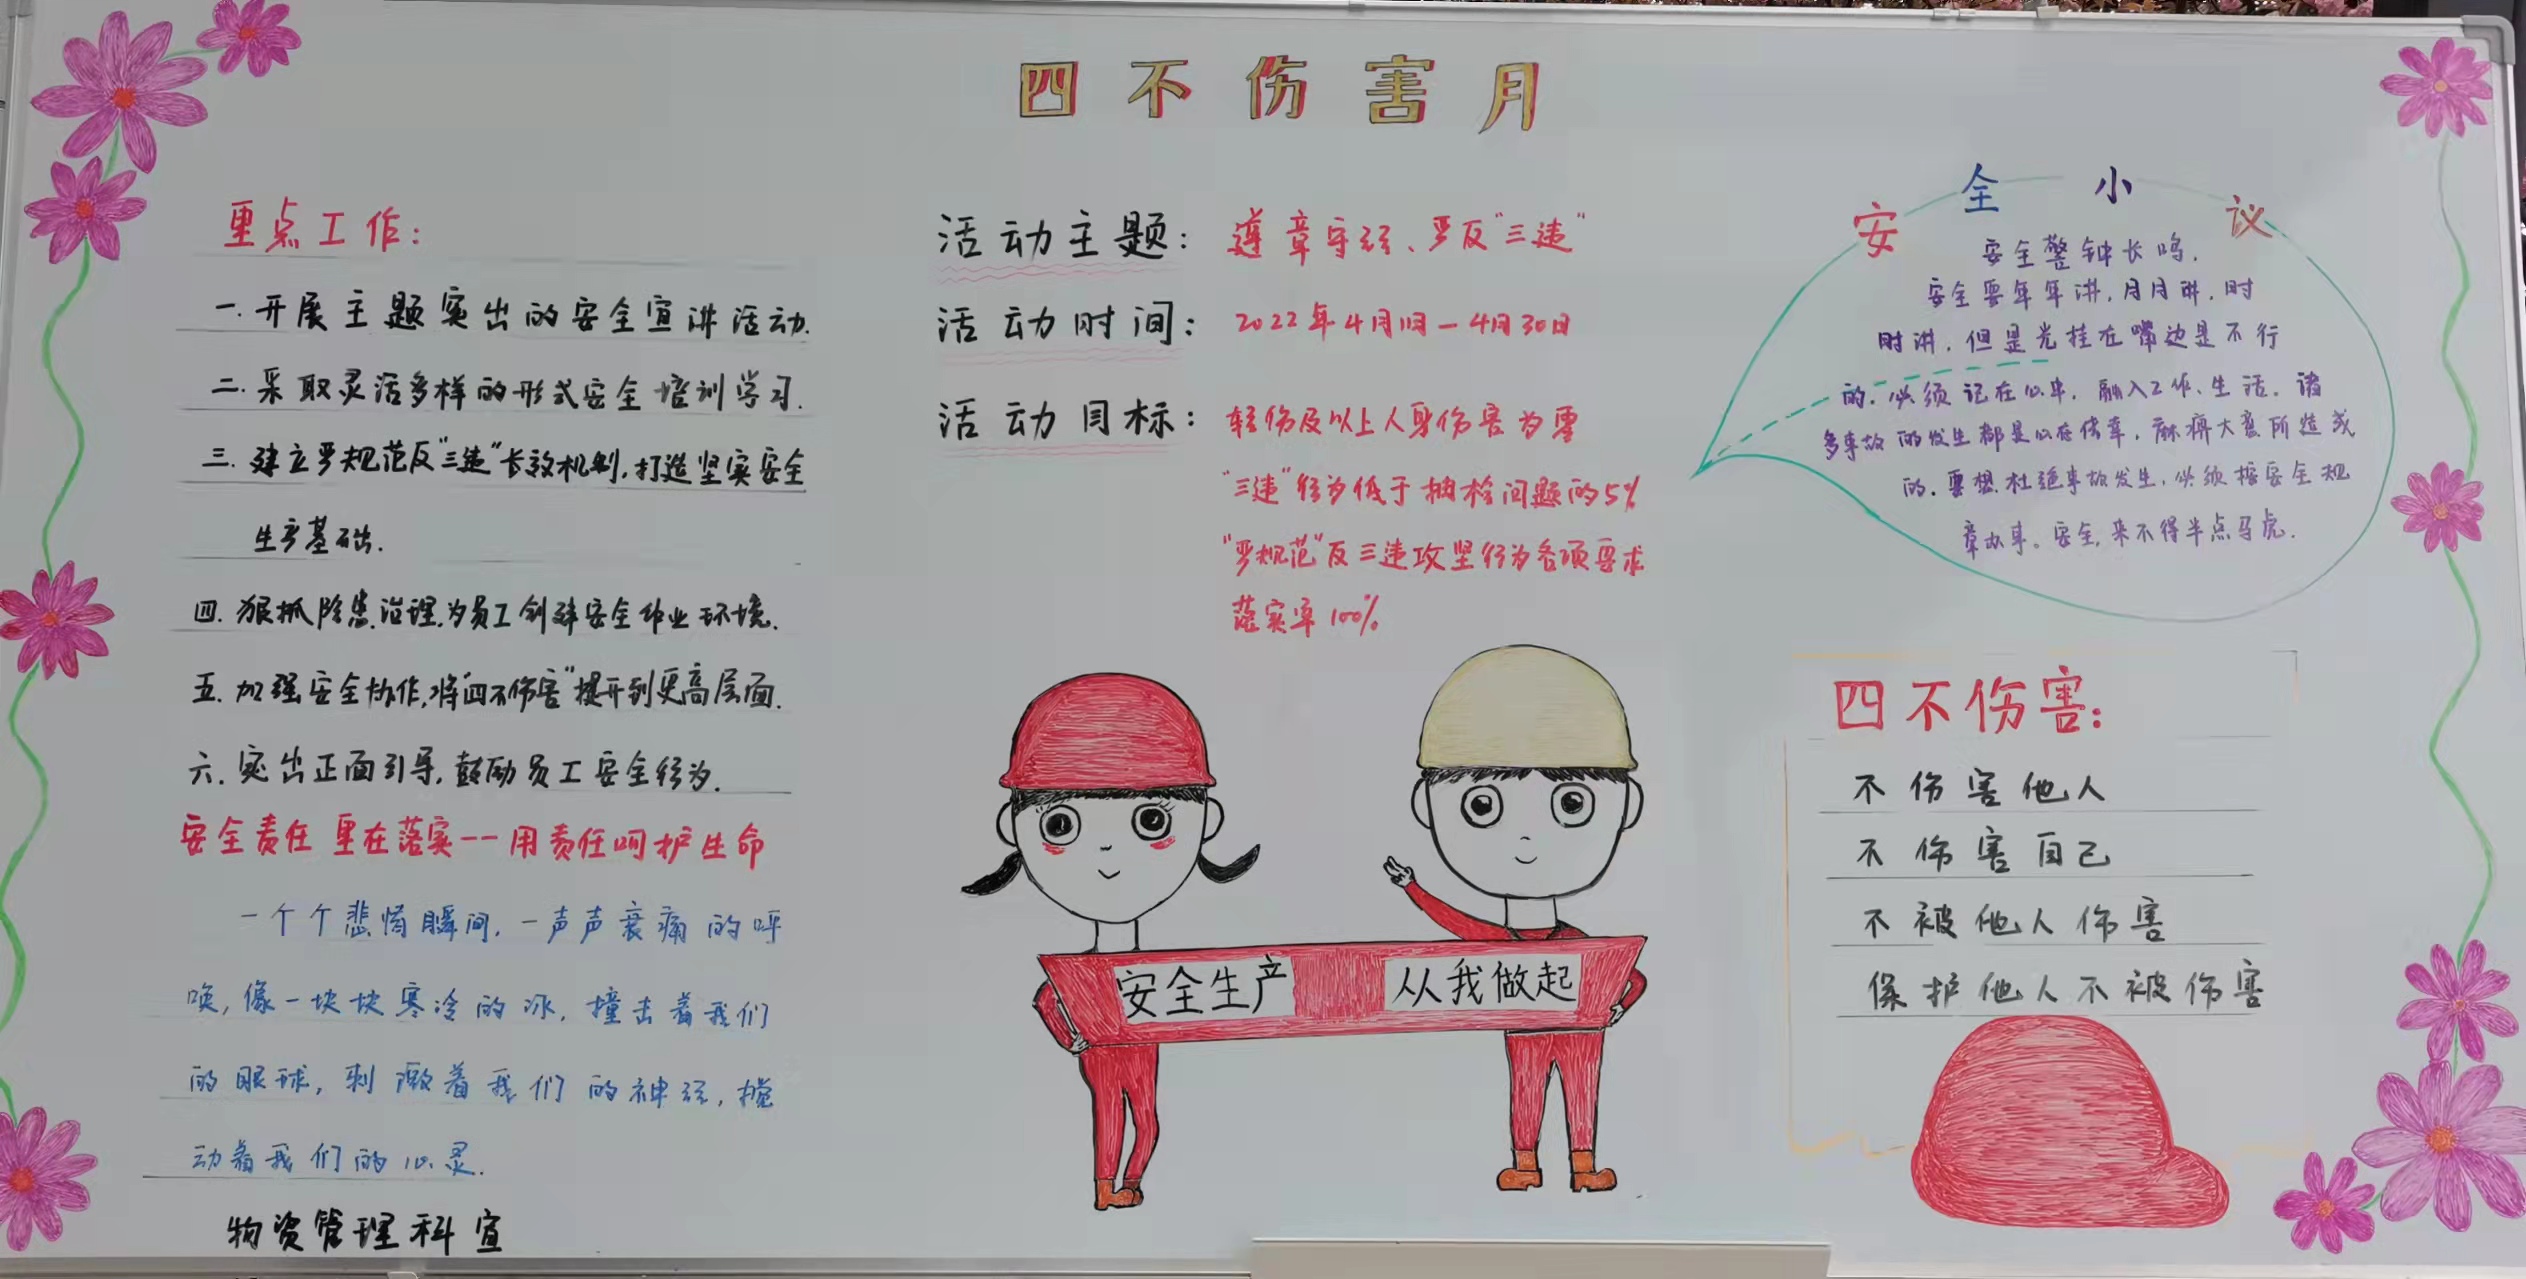 四不伤害月
重点工作：
一.开展主题突出的安全宣讲活动.
二.采取灵活多样的形式安全培训学习.
三.建立严规范反“三违”长效机制,打造坚实安全
生产基础.
四.狠抓隐患治理,为员工创建安全作业环境.
五.加强安全协作,将“四不伤害”提升到更高层面.
六.突出正面引导,鼓励员工安全行为.
安全责任 重在落实——用责任呵护生命
一个个悲惰瞬间,一声声哀痛的呼
唤,像一块块寒冷的冰,撞击着我们
的眼球,刺激着我们的神经,搅
动着我们的心灵.
物资管理科宣
活动主题：遵章守纪、严反“三违”
活动时间：2022年4月1日—4月30日
活动目标：轻伤及以上人身伤害为零
“三违”行为低于抽检问题的5%
“严规范”反三违攻坚行为各项要求
落实率100%
安全生产 从我做起
安全小议
安全警钟长鸣.
安全要年年讲,月月讲,时
时讲,但是光挂在嘴边是不行
的.必须记在心中,融入工作、生活.诸
多事故的发生都是心存侥幸,麻痹大意所造成
的.要想杜绝事故发生,必须按安全规
章办事。安全,来不得半点马虎.
四不伤害：
不伤害他人
不伤害自己
不被他人伤害
保护他人不被伤害